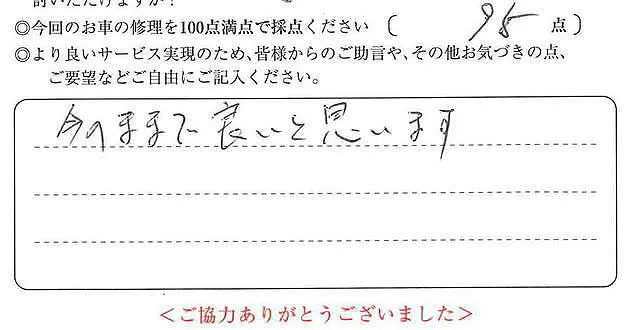 討いただけますか？
◎今回のお車の修理を100点満点で採点ください （ 95 点）
◎より良いサービス実現のため、皆様からのご助言や、その他お気づきの点、
ご要望などご自由にご記入ください。
今のままで良いと思います
＜ご協力ありがとうございました＞